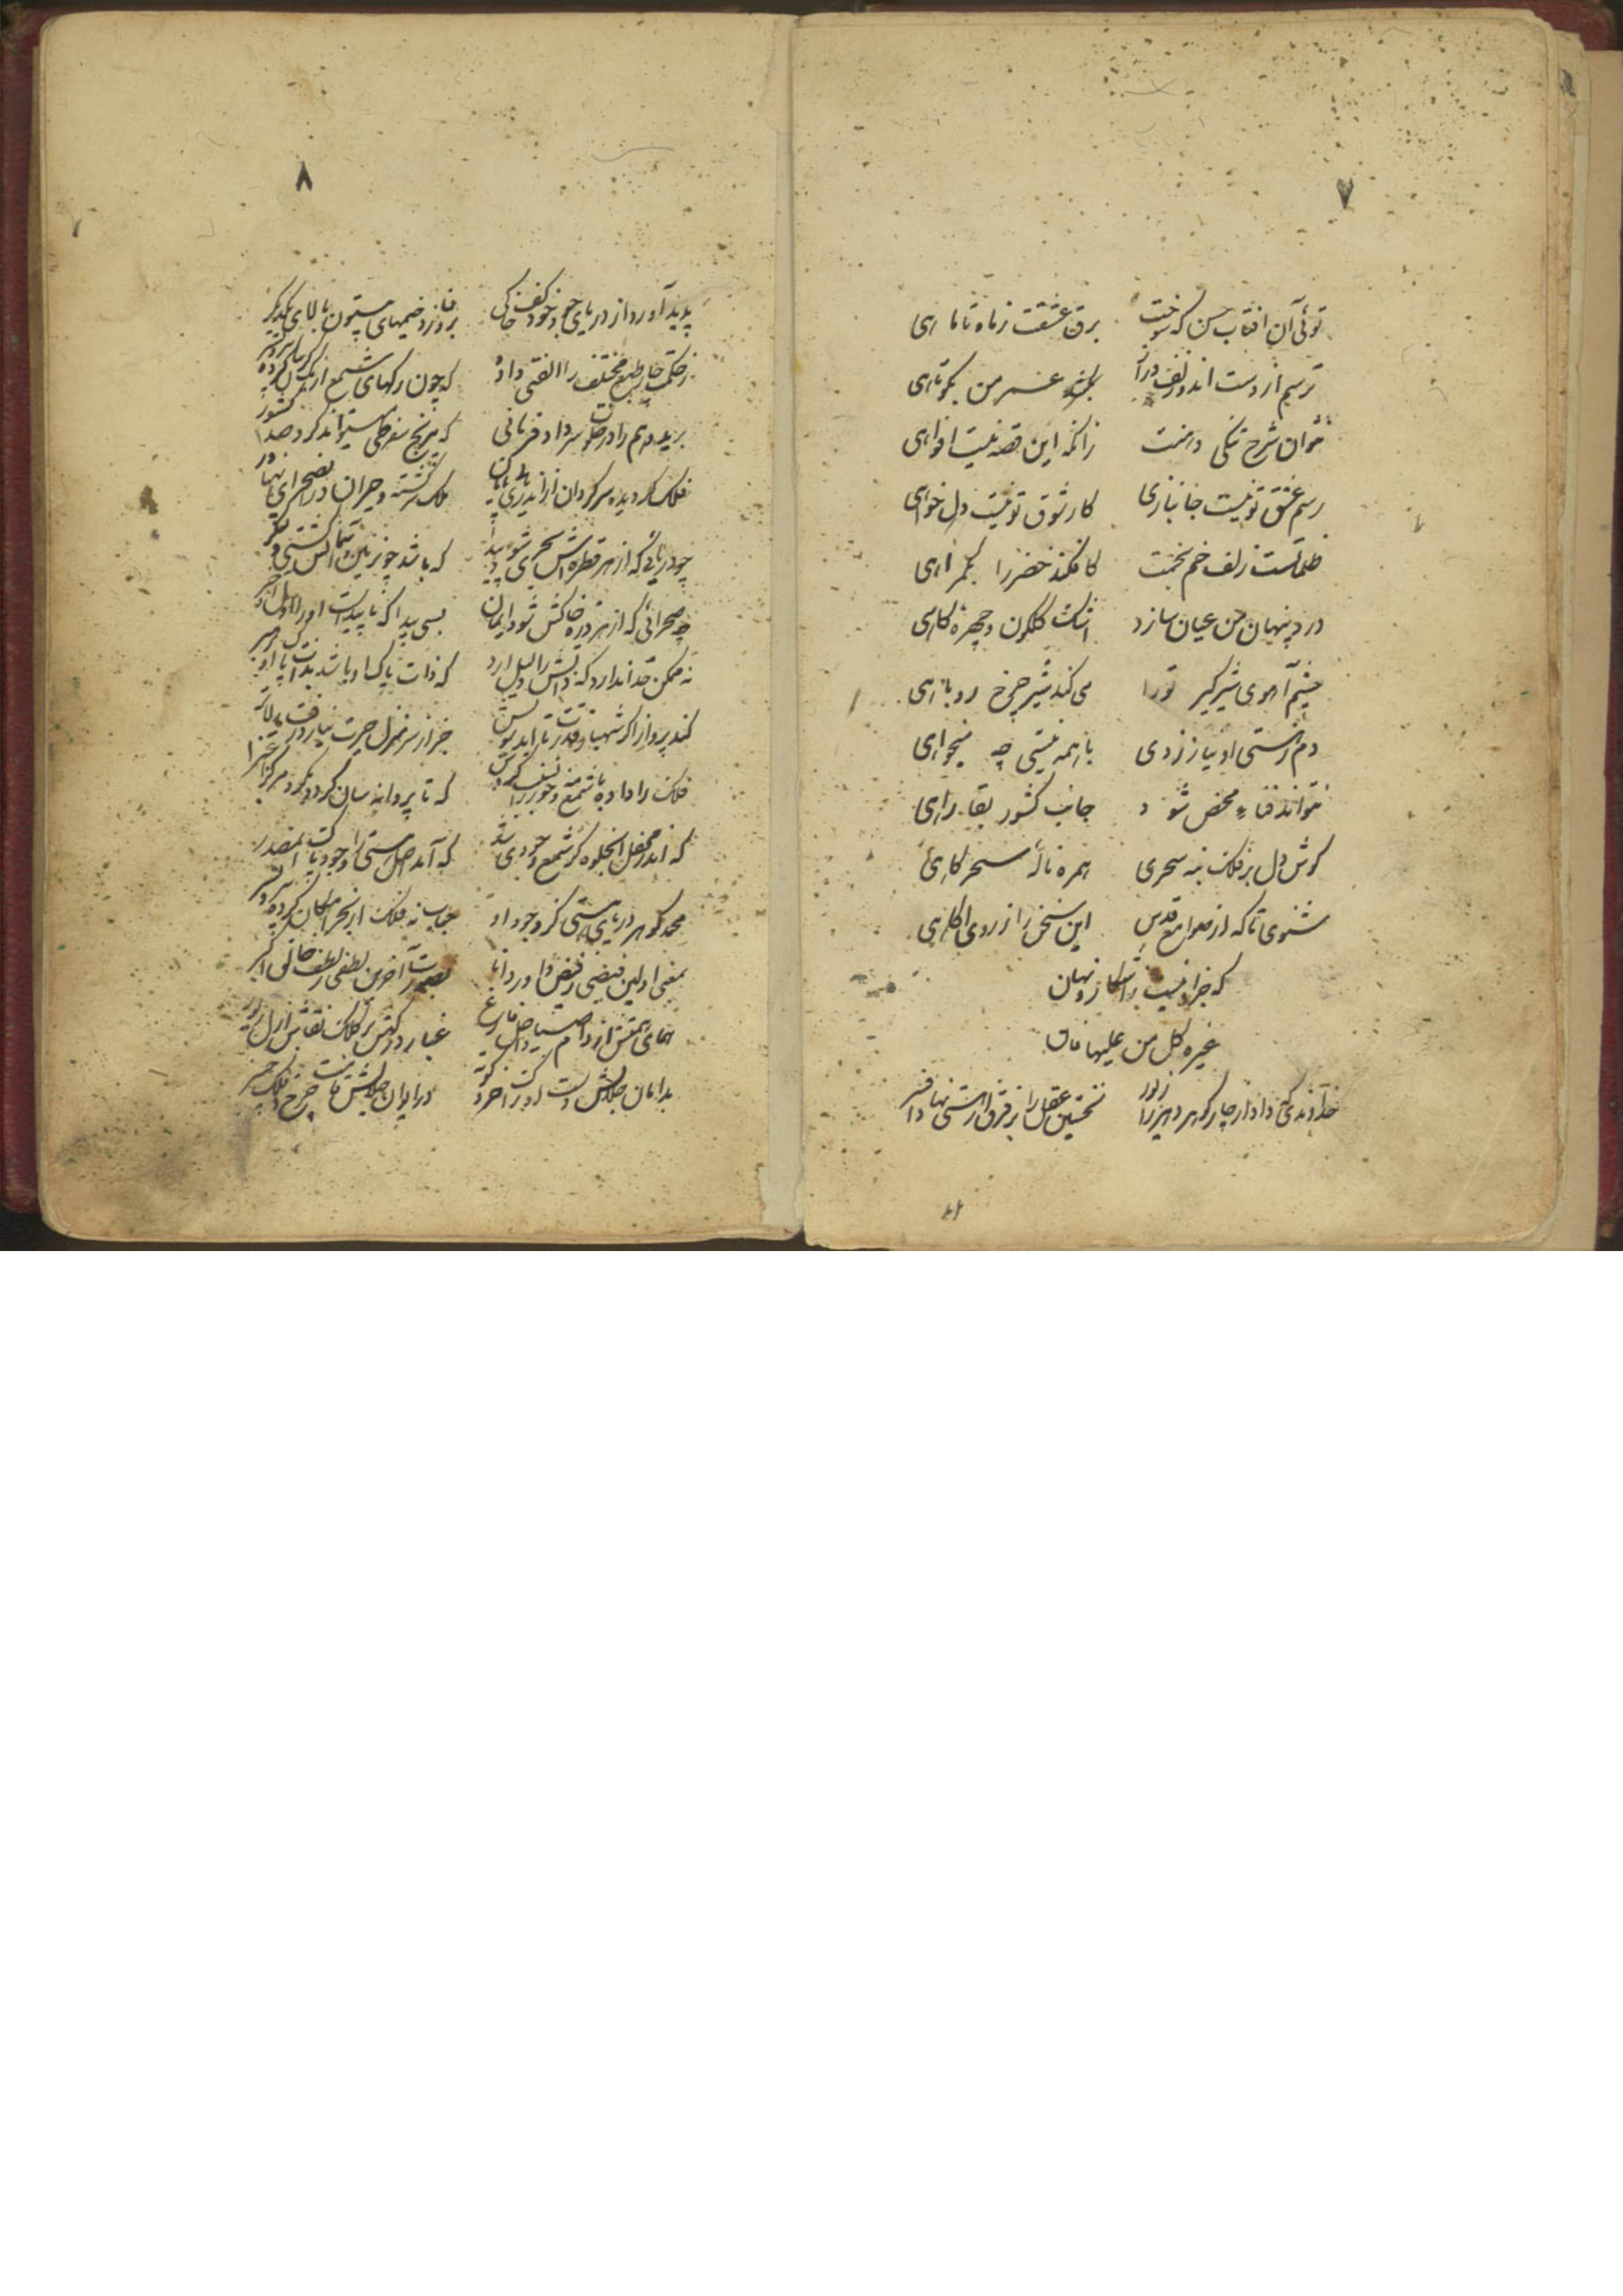 ۷
توئی آن افتاب حسن که سوخت برق عشقت ز ماه تا ماهی
ترسم از دست اندو زلف دراز عمر من بکوتاهی
نتوان شرح تنکی دهنت زانکه این قصه نیست افواهی
رسم عشق تو نیست جانبازی کار شوق تو نیست دل خواهی
ظلماتست زلف خم بخمت کافکند خضر را بگمراهی
درد پنهان من عیان سازد اشک کلکون و چهره کاهی
چشم آهوی شیر کیر تو را می کند شیر چرخ روباهی
دم ز هستی او نیارزدی با همه نیستی چه میخواهی
نتواند فناء محض شود جانب کشور بقا راهی
کوش دل بر فلک بنه سحری همره نالهٔ سحرکاهی
شنوی تا که از صوامع قدس این سخن را ز روی اکاهی
که جز او نیست آشکار و نهان
غیره کل من علیها فان
خداوندی که داد از چار کوهر زیور نخستین عقل را بر فرق از هستی نهاد افسر
۸
پدید آورد از دریای جود خود کف خاکی بر او زد خیمهای بیستون بالای یکدیکر
ز حکمت چار طبع مختلف را الفتی داده که چون رکهای شمع از یک کریبان کرده
برید وهم را در ملک فرمانی که در پنج سفر طی میتواند کرد صد کشور
فلک کردیده سرکردان از این بیابان ملک سرکشته و حیران در این صحرای
چه دریائی که از هر قطره اش بحری شود پیدا که باشد چو زمین آسمانش کشتی و لنکر
چه صحرائی که از هر ذره خاکش شود بسی پیدا که ناپیداست او را اول و آخر
نه ممکن حد ندارد که ذاتش را دلیل ارد که ذات پاک او باشد بذات پاک او رهبر
کند پرواز اکر شهباز قدرت تا ابد سویش خبر از سر منزل حیرت نیارد رفت بالاتر
فلک را داده شمع که تا پروانه سان کردد بکرد مرکز اغبر
که اندر محفل جلوه کر شمع وجودی شد که آمد اصل هستی را وجود پاک مصدر
محمد کوهر دریای هستی کز وجود او حباب نه فلک از بحر امکان کردیده
بمعنی اولین فیضی ز فیض داور دانا بصورت آخرین لطفی ز لطف خالق اکبر
همای همتش از دام صیاد اجل فارغ غبار درکهش بر کلک نقاش ازل زیور
بدامان جلالش دست ادراک خرد کوته در ایوان جلالش چرخ